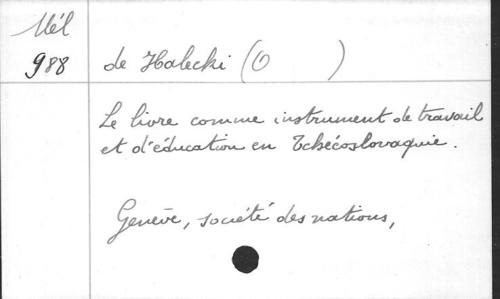 Mél
988
de Halecki (O )
Le livre comme instrument de travail
et d'éducation en Tchécoslovaquie.
Genève, société des nations,